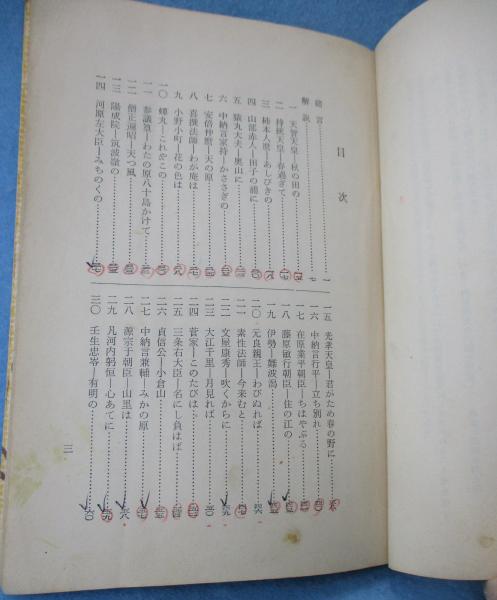 目次
緒言
解説
一 天智天皇―秋の田の
二 持統天皇―春過ぎて
三 柿本人麿―あしびきの
四 山部赤人―田子の浦に
五 猿丸大夫―奥山に
六 中納言家持―かささぎの
七 安倍仲麿―天の原
八 喜撰法師―わが庵は
九 小野小町―花の色は
一〇 蟬丸―これやこの
一一 参議篁―わたの原八十島かけて
一二 僧正遍昭―天つ風
一三 陽成院―筑波嶺の
一四 河原左大臣―みちのくの
一五 光孝天皇―君がため春の野に
一六 中納言行平―立ち別れ
一七 在原業平朝臣―ちはやぶる
一八 藤原敏行朝臣―住の江の
一九 伊勢―難波潟
二〇 元良親王―わびぬれば
二一 素性法師―今来むと
二二 文屋康秀―吹くからに
二三 大江千里―月見れば
二四 菅家―このたびは
二五 三条右大臣―名にし負はば
二六 貞信公―小倉山
二七 中納言兼輔―みかの原
二八 源宗于朝臣―山里は
二九 凡河内躬恒―心あてに
三〇 壬生忠岑―有明の
三